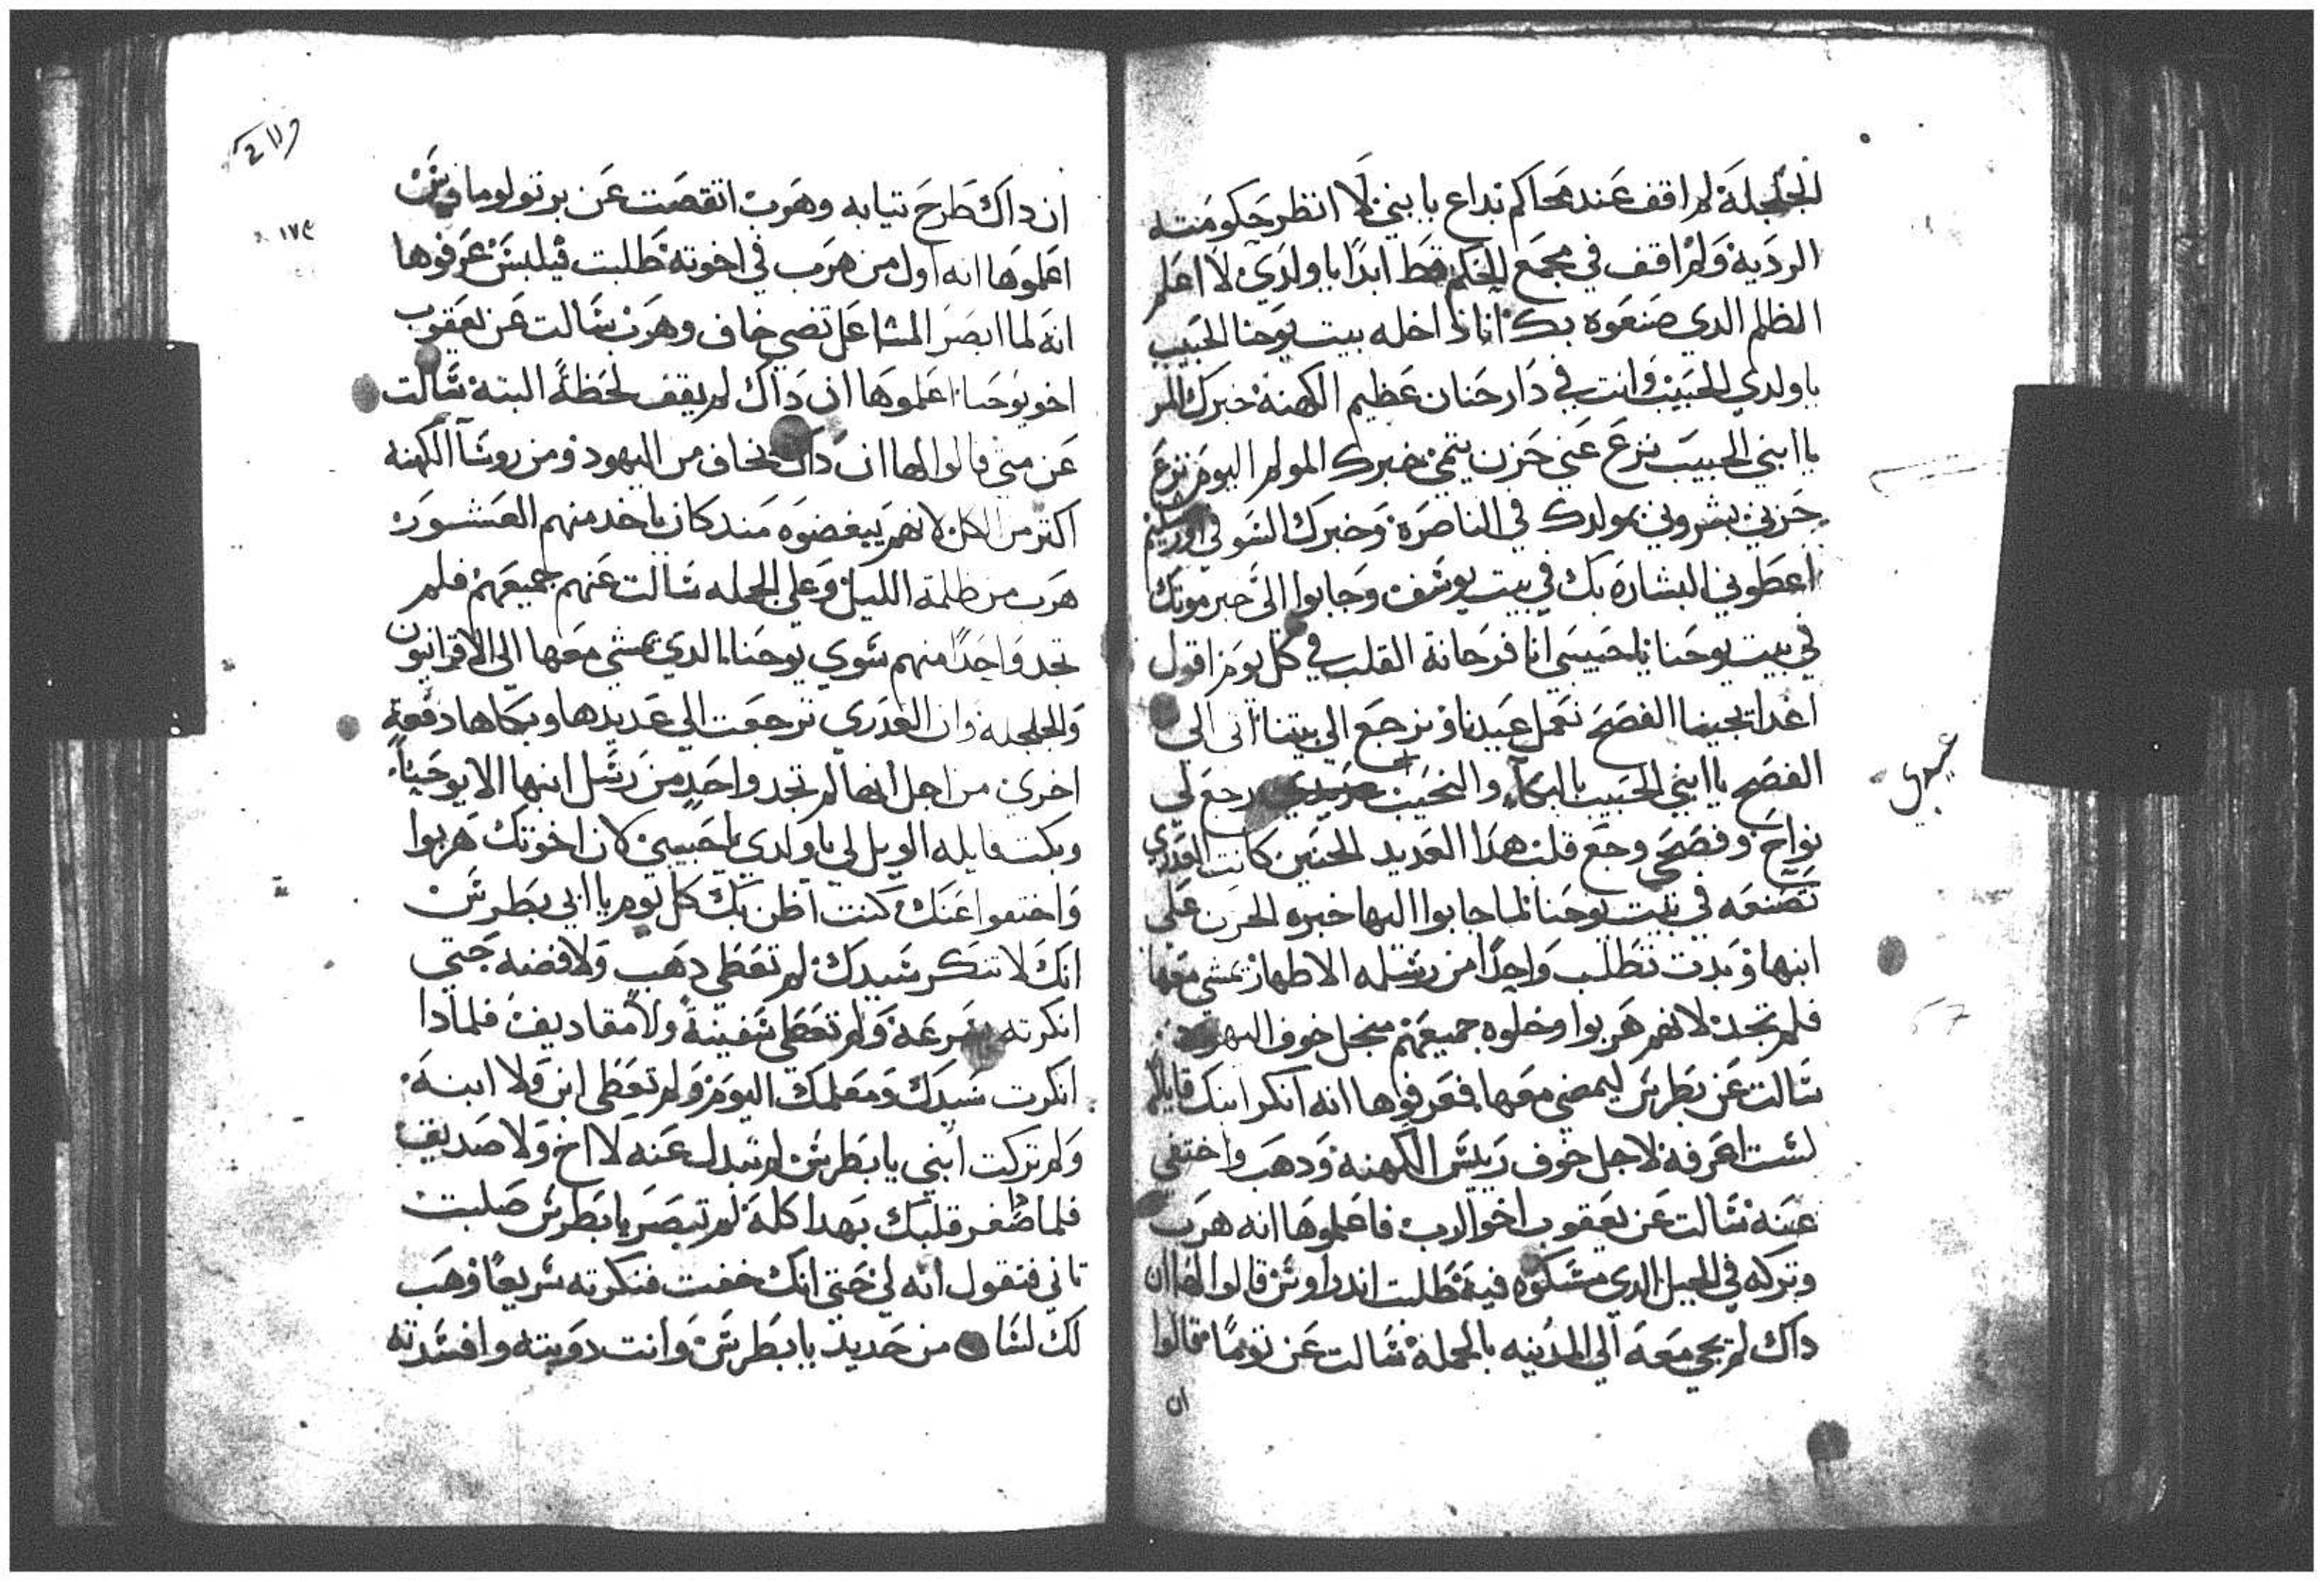 الجلجلة لم اقف عند محاكم بداع يا بني لا انظر حكومته
الردية ولم اقف في مجمع الحكم قط ابدا يا ولدي لا اعلم
الظلم الدي صنعوه بك انا داخله بيت يوحنا الحبيب
يا ولدي الحبيب وانت في دار حنان عظيم الكهنة خبرك المر
يا ابني الحبيب نزع عني حزن يتمي خبرك المولم اليوم نزع
حزني بشروني بمولدك في الناصرة وخبرك السو في اورشليم
اعطوني البشارة بك في بيت يوسف وجابوا الى خبر موتك
في بيت يوحنا يا حبيبي انا فرحانة القلب في كل يوم اقول
اغدا يجينا الفصح نعمل عيدنا ونرجع الي بيتنا اتى الى
الفصح يا ابني الحبيب بالبكاء والنحيب رجع لي
عيدي
نواح وفصحي وجع قلب هدا العديد الحنين كانت العدري
تصنعه في بيت يوحنا لما جابوا اليها خبره الحزن على
ابنها وبدت تطلب واحدا من رسله الاطهار يمشي معها
فلم تجد لانهم هربوا وخلوه جميعهم منجل خوف اليهود
سالت عن بطرس ليمضي معها فعرفوها انه انكر ابنك قايلا
لست اعرفه لاجل خوف رييس الكهنة ودهب واختفي
عنه سالت عن يعقوب اخو الرب فاعلموها انه هرب
وتركه في الجبل الدي مسكوه فيه طلبت اندراوس قالوا لها ان
داك لم يجي معه الي المدينه بالجملة سالت عن توما فقالوا
ان
ان داك طرح تيابه وهرب اتقصت عن برتولوماوس
اعلموها انه اول من هرب في اخوته طلبت فيلبس عرفوها
انه لما ابصر المشاعل تضي خاف وهرب سالت عن يعقوب
اخو يوحنا اعلموها ان داك لم يقف لحظة البتة سالت
عن متي قالوا لها ان داك يخاف من اليهود ومن روسا الكهنه
اكتر من الكل لانهم يبغضوه مند كان ياخد منهم العشور
هرب من ظلمة الليل وعلي الجمله سالت عنهم جميعهم فلم
تجد واحدا منهم سوي يوحنا الدي يمشي معها الي الاقرانيون
والجلجلة وان العدري ترجعت الي عديدها وبكاها دفعة
اخري من اجل انها لم تجد واحد من رسل ابنها الا يوحنا
وبكت قايله الويل لي يا ولدي يا حبيبي لان اخوتك هربوا
واختفوا عنك كنت اظن بك كل يوم يا ابي بطرس
انك لا تنكر سيدك لم تعطي دهب ولا فضه حتي
انكرته بسرعة ولم تعطي سفينة ولا مقاديف فلمادا
انكرت سيدك ومعلمك اليوم ولم تعطي ابن ولا ابنة
ولم تركت ابني يا بطرس لم تبدل عنه لا اخ ولا صديق
فلما صغر قلبك بهدا كله لم تبصر يا بطرس صلبت
تاني فتقول انه لي حتي انك خفت فنكرته سريعا وهب
لك لسان من حديد يا بطرس وانت دوبته وافسدته
١٧٤